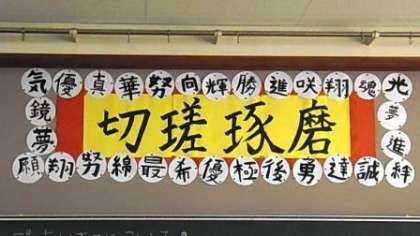 気優真華努向輝勝進咲翔魂光
鏡
夢
夢
進
切瑳琢磨
願翔努綿最希優極後勇達誠絆